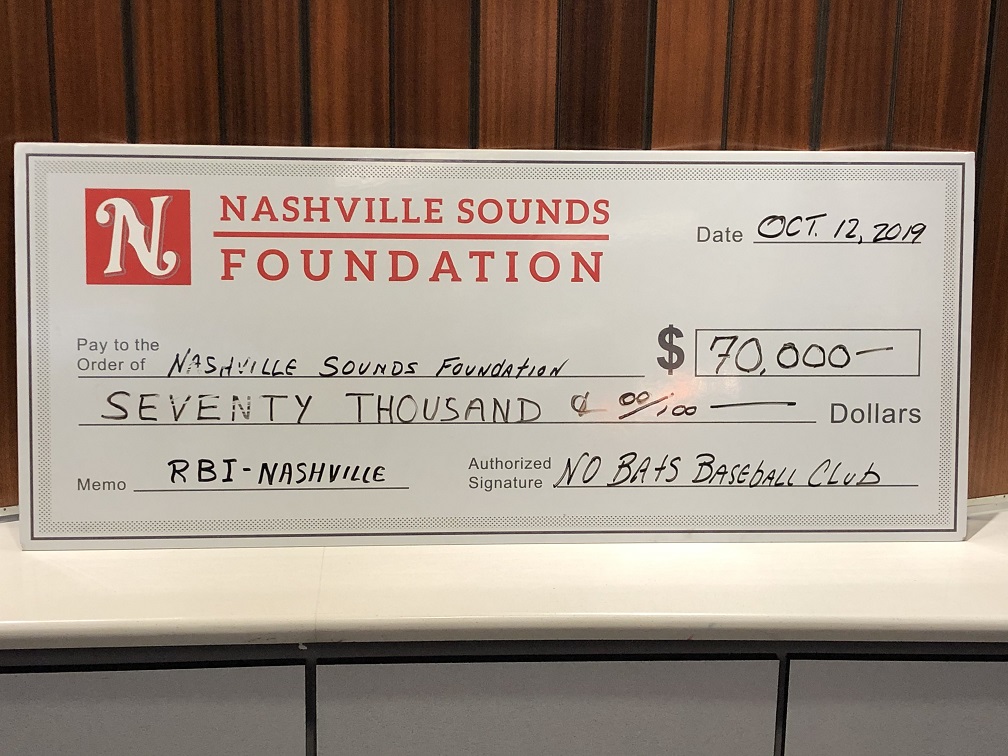 N
NASHVILLE SOUNDS
FOUNDATION
Date OCT. 12, 2019
Pay to the
Order of NASHVILLE SOUNDS FOUNDATION
$ 70,000—
SEVENTY THOUSAND & 00/100 — Dollars
Memo RBI-NASHVILLE
Authorized
Signature NO BATS BASEBALL CLUB